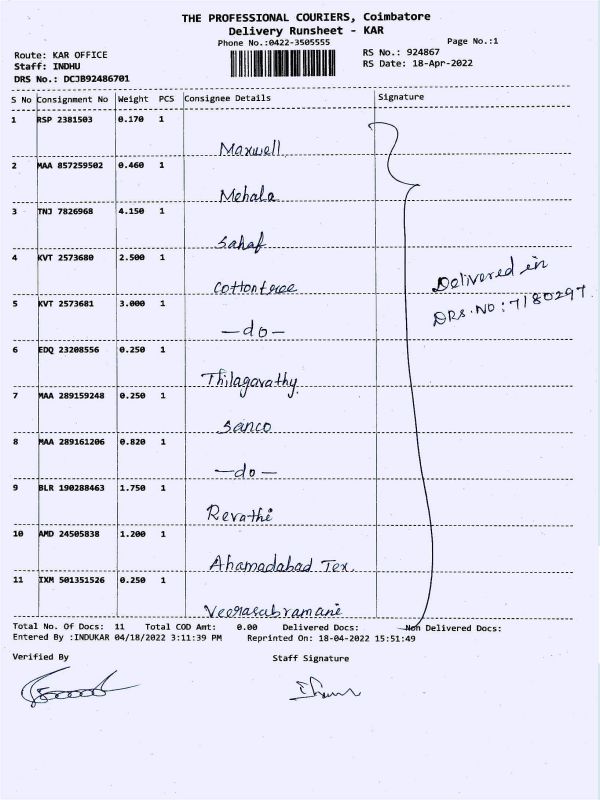 THE PROFESSIONAL COURIERS, Coimbatore
Delivery Runsheet - KAR
Phone No.:0422-3505555
Page No.:1
Route: KAR OFFICE
RS No.: 924867
Staff: INDHU
RS Date: 18-Apr-2022
DRS No.: DCJB92486701
S No Consignment No Weight PCS Consignee Details Signature
1 RSP 2381503 0.170 1
Maxwell
2 MAA 857259502 0.460 1
Mehala
3 TNJ 7826968 4.150 1
Sahaf
4 KVT 2573680 2.500 1
Cottontree
Delivered in
5 KVT 2573681 3.000 1
DRS.NO:7180297
—do—
6 EDQ 23208556 0.250 1
Thilagavathy
7 MAA 289159248 0.250 1
Sanco
8 MAA 289161206 0.820 1
—do—
9 BLR 190288463 1.750 1
Revathi
10 AMD 24505838 1.200 1
Ahamadabad Tex.
11 IXM 501351526 0.250 1
Veerasubramani
Total No. Of Docs: 11 Total COD Amt: 0.00 Delivered Docs: Non Delivered Docs:
Entered By :INDUKAR 04/18/2022 3:11:39 PM Reprinted On: 18-04-2022 15:51:49
Verified By Staff Signature